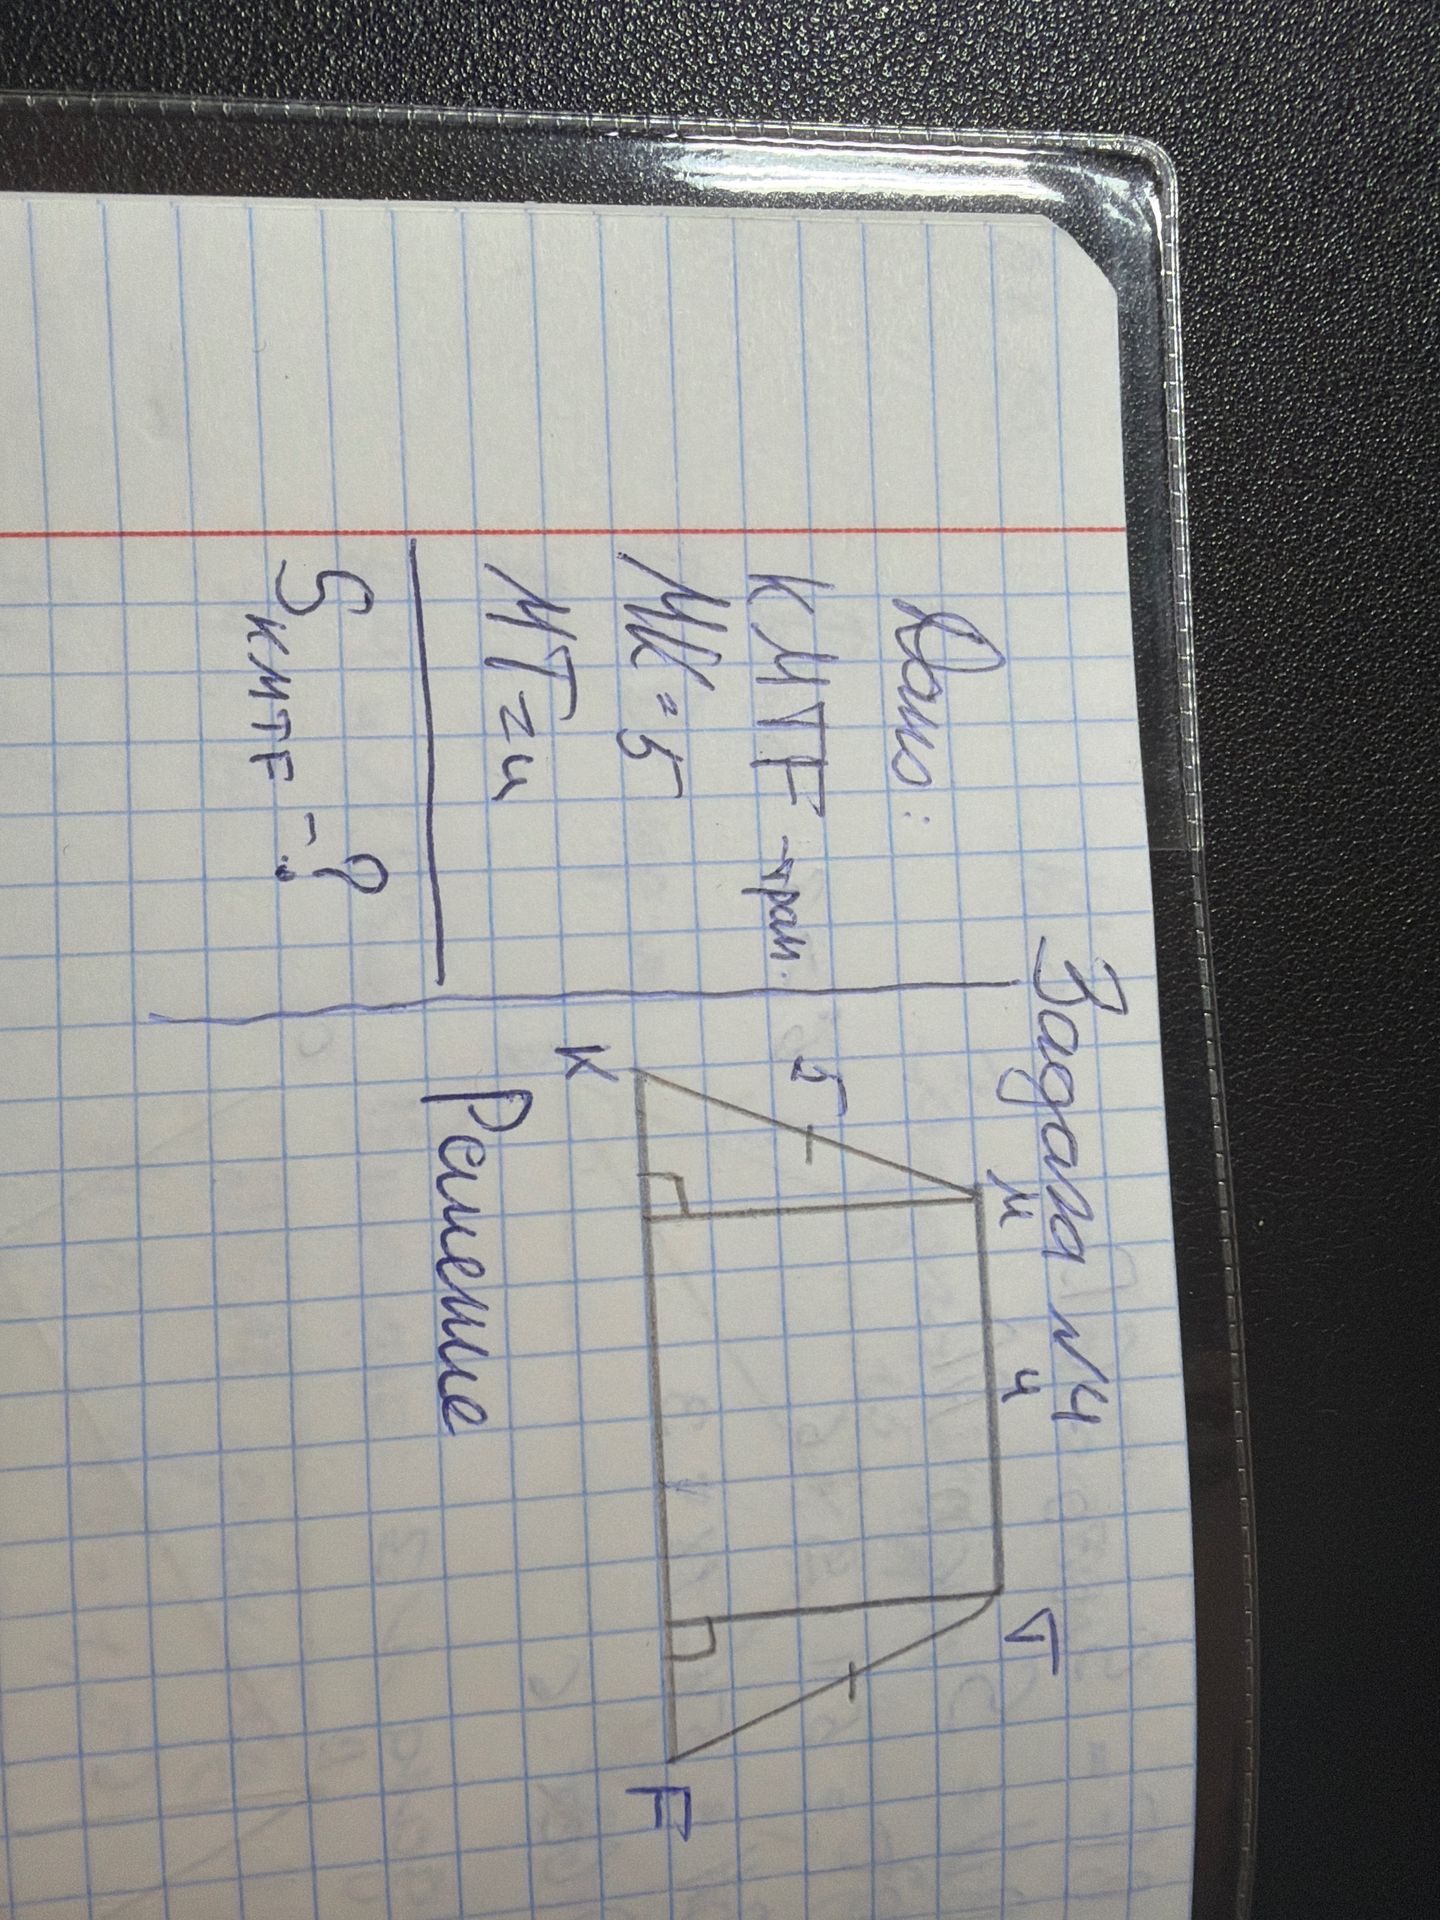 Задача №4
Дано:
KMTF - трап.
MK = 5
MT = 4
SKMTF - ?
M
4
T
5
K
F
Решение